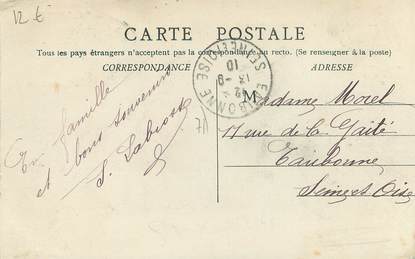 12 €
CARTE POSTALE
Tous les pays étrangers n'acceptent pas la correspondance au recto. (Se renseigner à la poste)
CORRESPONDANCE
ADRESSE
En famille
et bons souvenirs
S. Labrosse
EAUBONNE
SEINE-ET-OISE
13 - 9
10
M
Madame Morel
17 rue de la Gaité
Eaubonne
Seine et Oise